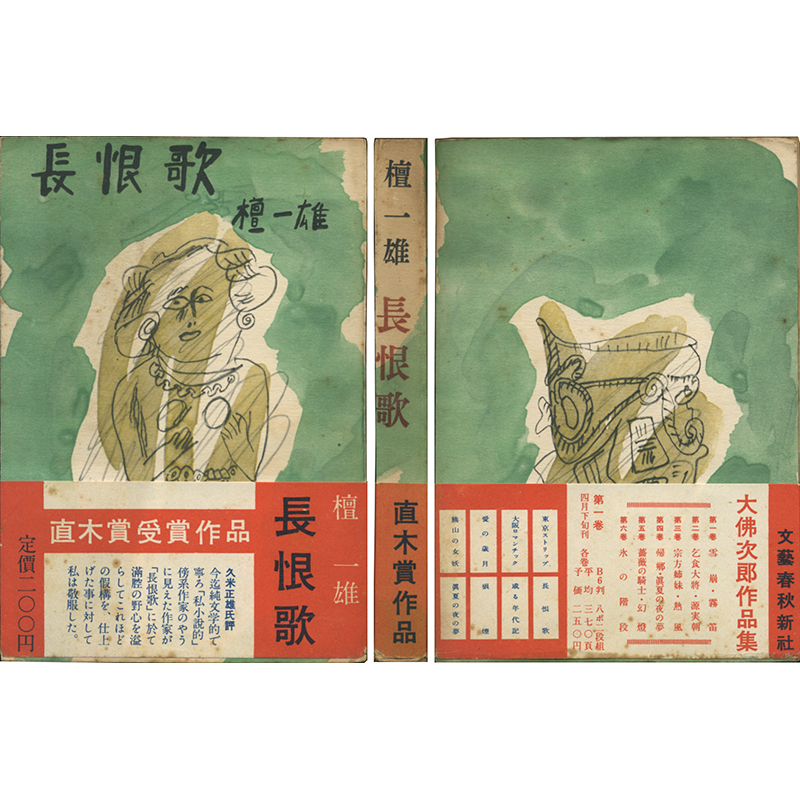 長恨歌
檀一雄
檀一雄
長恨歌
直木賞受賞作品
久米正雄氏評
今迄純文学的で
寧ろ「私小説的」
傍系作家のやう
に見えた作家が
「長恨歌」に於て
満腔の野心を溢
らしてこれほど
の假構を、仕上
げた事に対して
私は敬服した。
定價二〇〇円
檀一雄
長恨歌
直木賞作品
文藝春秋新社
大佛次郎作品集
第一巻 雪崩・霧笛
第二巻 乞食大将・源実朝
第三巻 宗方姉妹・熱風
第四巻 帰郷・真夏の夜の夢
第五巻 薔薇の騎士・幻燈
第六巻 氷の階段
第一巻 B6判 八ポ二段組
四月下旬刊 各巻 平均三七〇頁
予価二五〇円
東京ストリップ
長恨歌
大阪ロマンチック
或る年代記
愛の歳月
熊山の女妖
眞夏の夜の夢